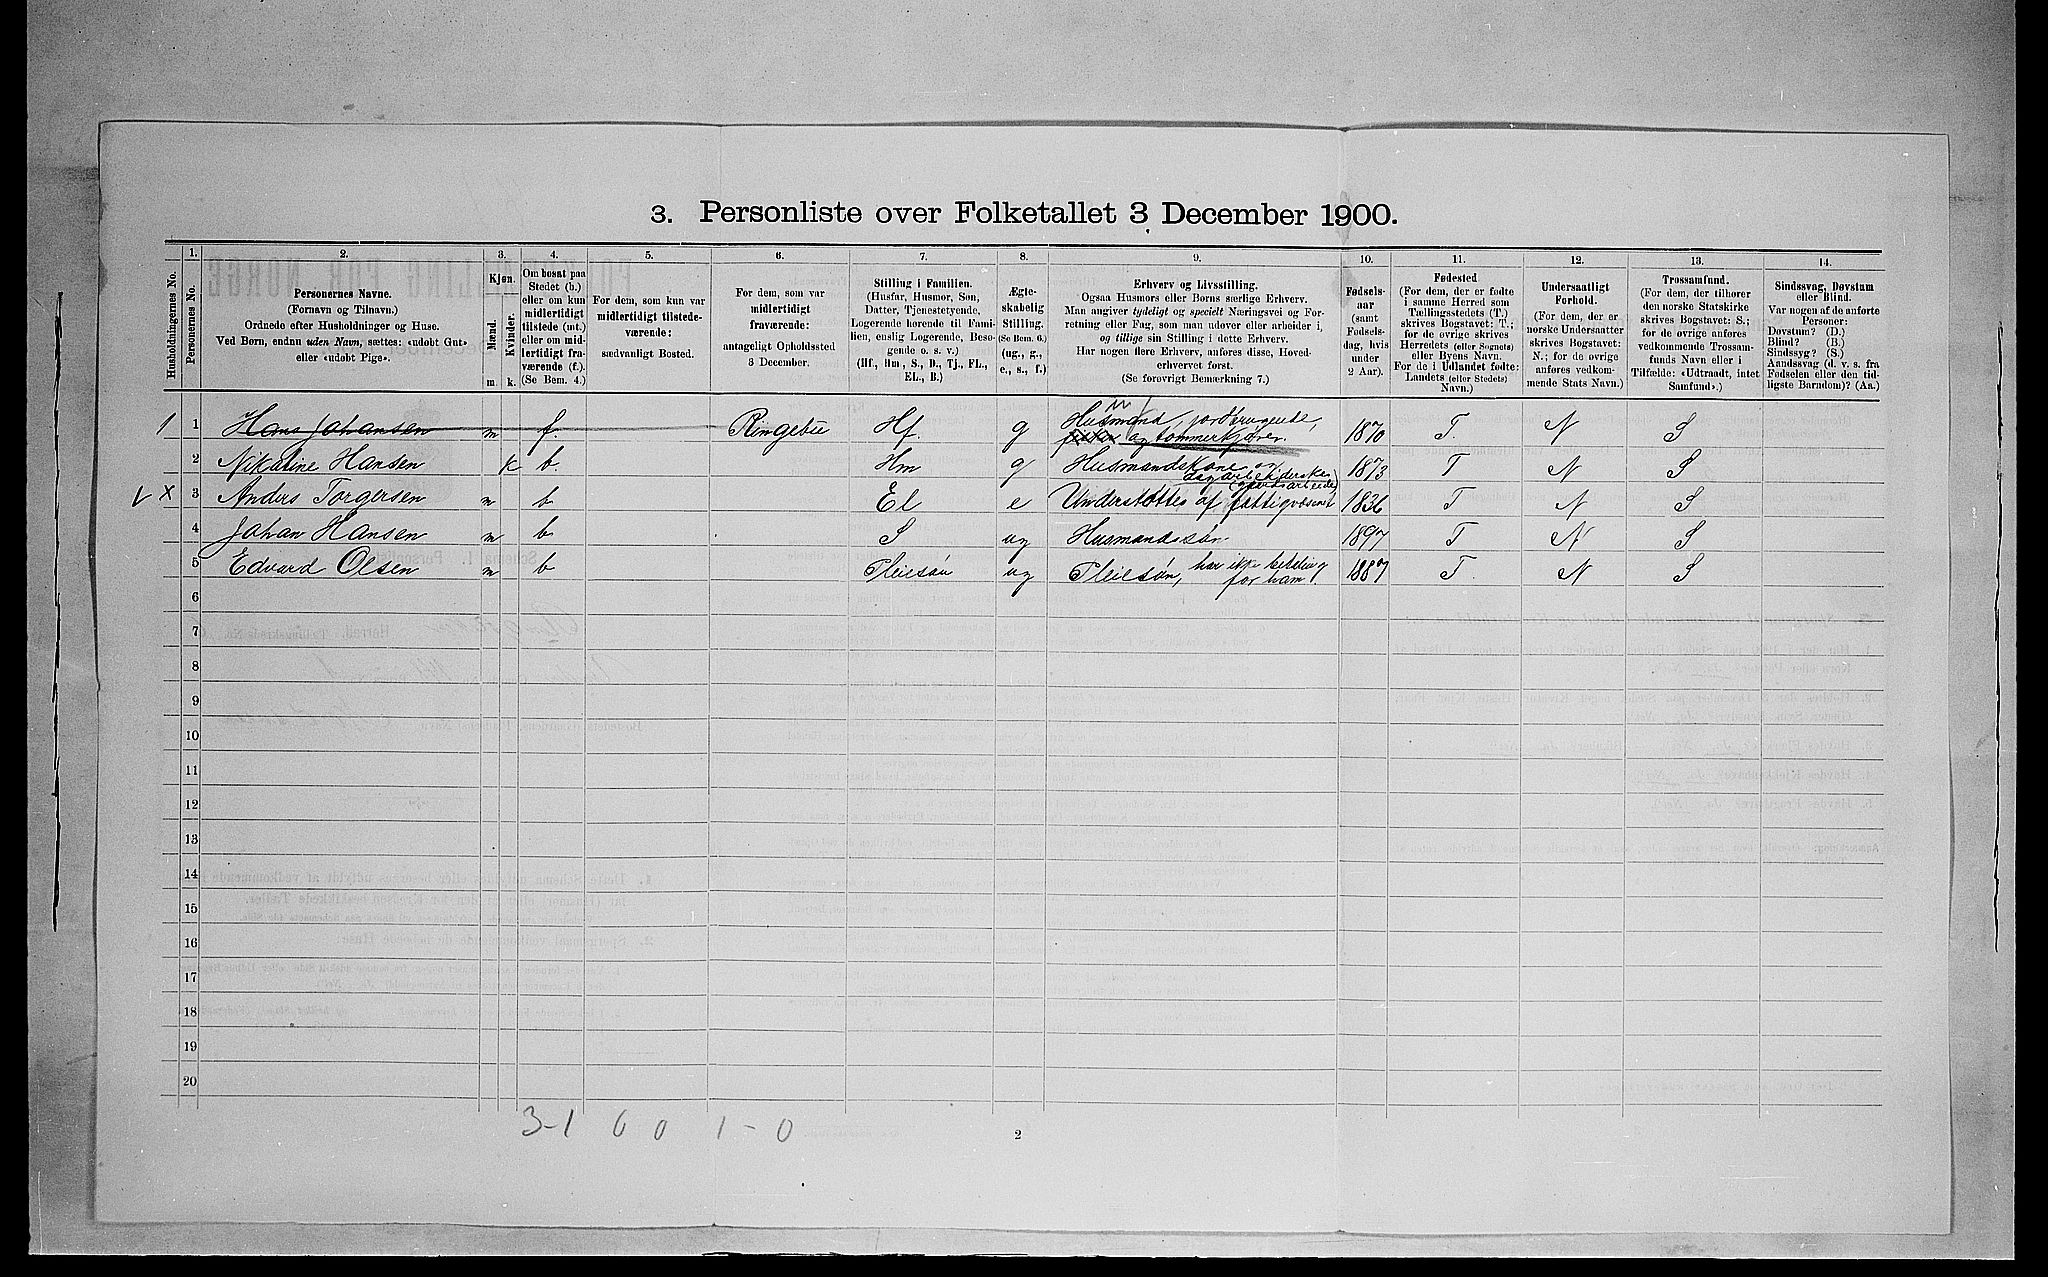 3. Personliste over Folketallet 3 December 1900.
1. 2. 3. 4. 5. 6. 7. 8. 9. 10. 11. 12. 13. 14.
Husholdningernes No.
Personernes No.
Personernes Navne.
(Fornavn og Tilnavn).
Ordnede efter Husholdninger og Huse.
Ved Børn, endnu uden Navn, sættes: «udøbt Gut»
eller «udøbt Pige».
Kjøn.
Mænd.
Kvinder.
m. k.
Om bosat paa
Stedet (b.)
eller om kun
midlertidigt
tilstede (mt.)
eller om mid-
lertidigt fra-
værende (f.).
(Se Bem. 4.)
For dem, som kun var
midlertidigt tilstede-
værende:
sædvanligt Bosted.
For dem, som var
midlertidigt
fraværende:
antageligt Opholdssted
3 December.
Stilling i Familien.
(Husfar, Husmor, Søn,
Datter, Tjenestetyende,
Logerende hørende til Fami-
lien, enslig Logerende, Besø-
gende o. s. v.)
(Hf., Hm., S., D., Tj., FL.,
EL., B.)
Ægte-
skabelig
Stilling.
(Se Bem. 6.)
(ug., g.,
e., s., f.)
Erhverv og Livsstilling.
Ogsaa Husmors eller Børns særlige Erhverv.
Man angiver tydeligt og specielt Næringsvei og For-
retning eller Fag, som man udøver eller arbeider i,
og tillige sin Stilling i dette Erhverv.
Har nogen flere Erhverv, anføres disse, Hoved-
erhvervet først.
(Se forøvrigt Bemærkning 7.)
Fødsels-
aar
(samt
Fødsels-
dag, hvis
under
2 Aar).
Fødested
(For dem, der er fødte
i samme Herred som
Tællingsstedets (T.)
skrives Bogstavet: T.;
for de øvrige skrives
Herredets (eller Sognets)
eller Byens Navn.
For de i Udlandet fødte:
Landets (eller Stedets)
Navn.)
Undersaatligt
Forhold.
(For dem, der er
norske Undersaatter
skrives Bogstavet:
N.; for de øvrige
anføres vedkom-
mende Stats Navn.)
Trossamfund.
(For dem, der tilhører
den norske Statskirke
skrives Bogstavet: S.;
for de øvrige anføres
vedkommende Trossam-
funds Navn eller i
Tilfælde: «Udtraadt, intet
Samfund».)
Sindssvag, Døvstum
eller Blind.
Var nogen af de anførte
Personer:
Døvstum? (D.)
Blind? (B.)
Sindssyg? (S.)
Aandssvag (d. v. s. fra
Fødselen eller den tid-
ligste Barndom)? (Aa.)
1 1 Hans Johansen m f. Ringebu Hf. g Husmand, jordbrugende,
fisker og tømmerkjører. 1870 T. N S
2 Nikoline Hansen k b. Hm g Husmandskone og
dagarbeiderske 1873 T N S
(gaardsarbeide)
x 3 Anders Torgersen m b El e Understøttes af fattigvæsenet 1836 T N S
4 Johan Hansen m b S ug Husmandssøn 1897 T N S
5 Edvard Olsen m b Pleiesøn ug Pleiesøn, har ikke betaling
for ham 1887 T. N S
6
7
8
9
10
11
12
13
14
15
16
17
18
19
20
3-1 0 0 1-0
2